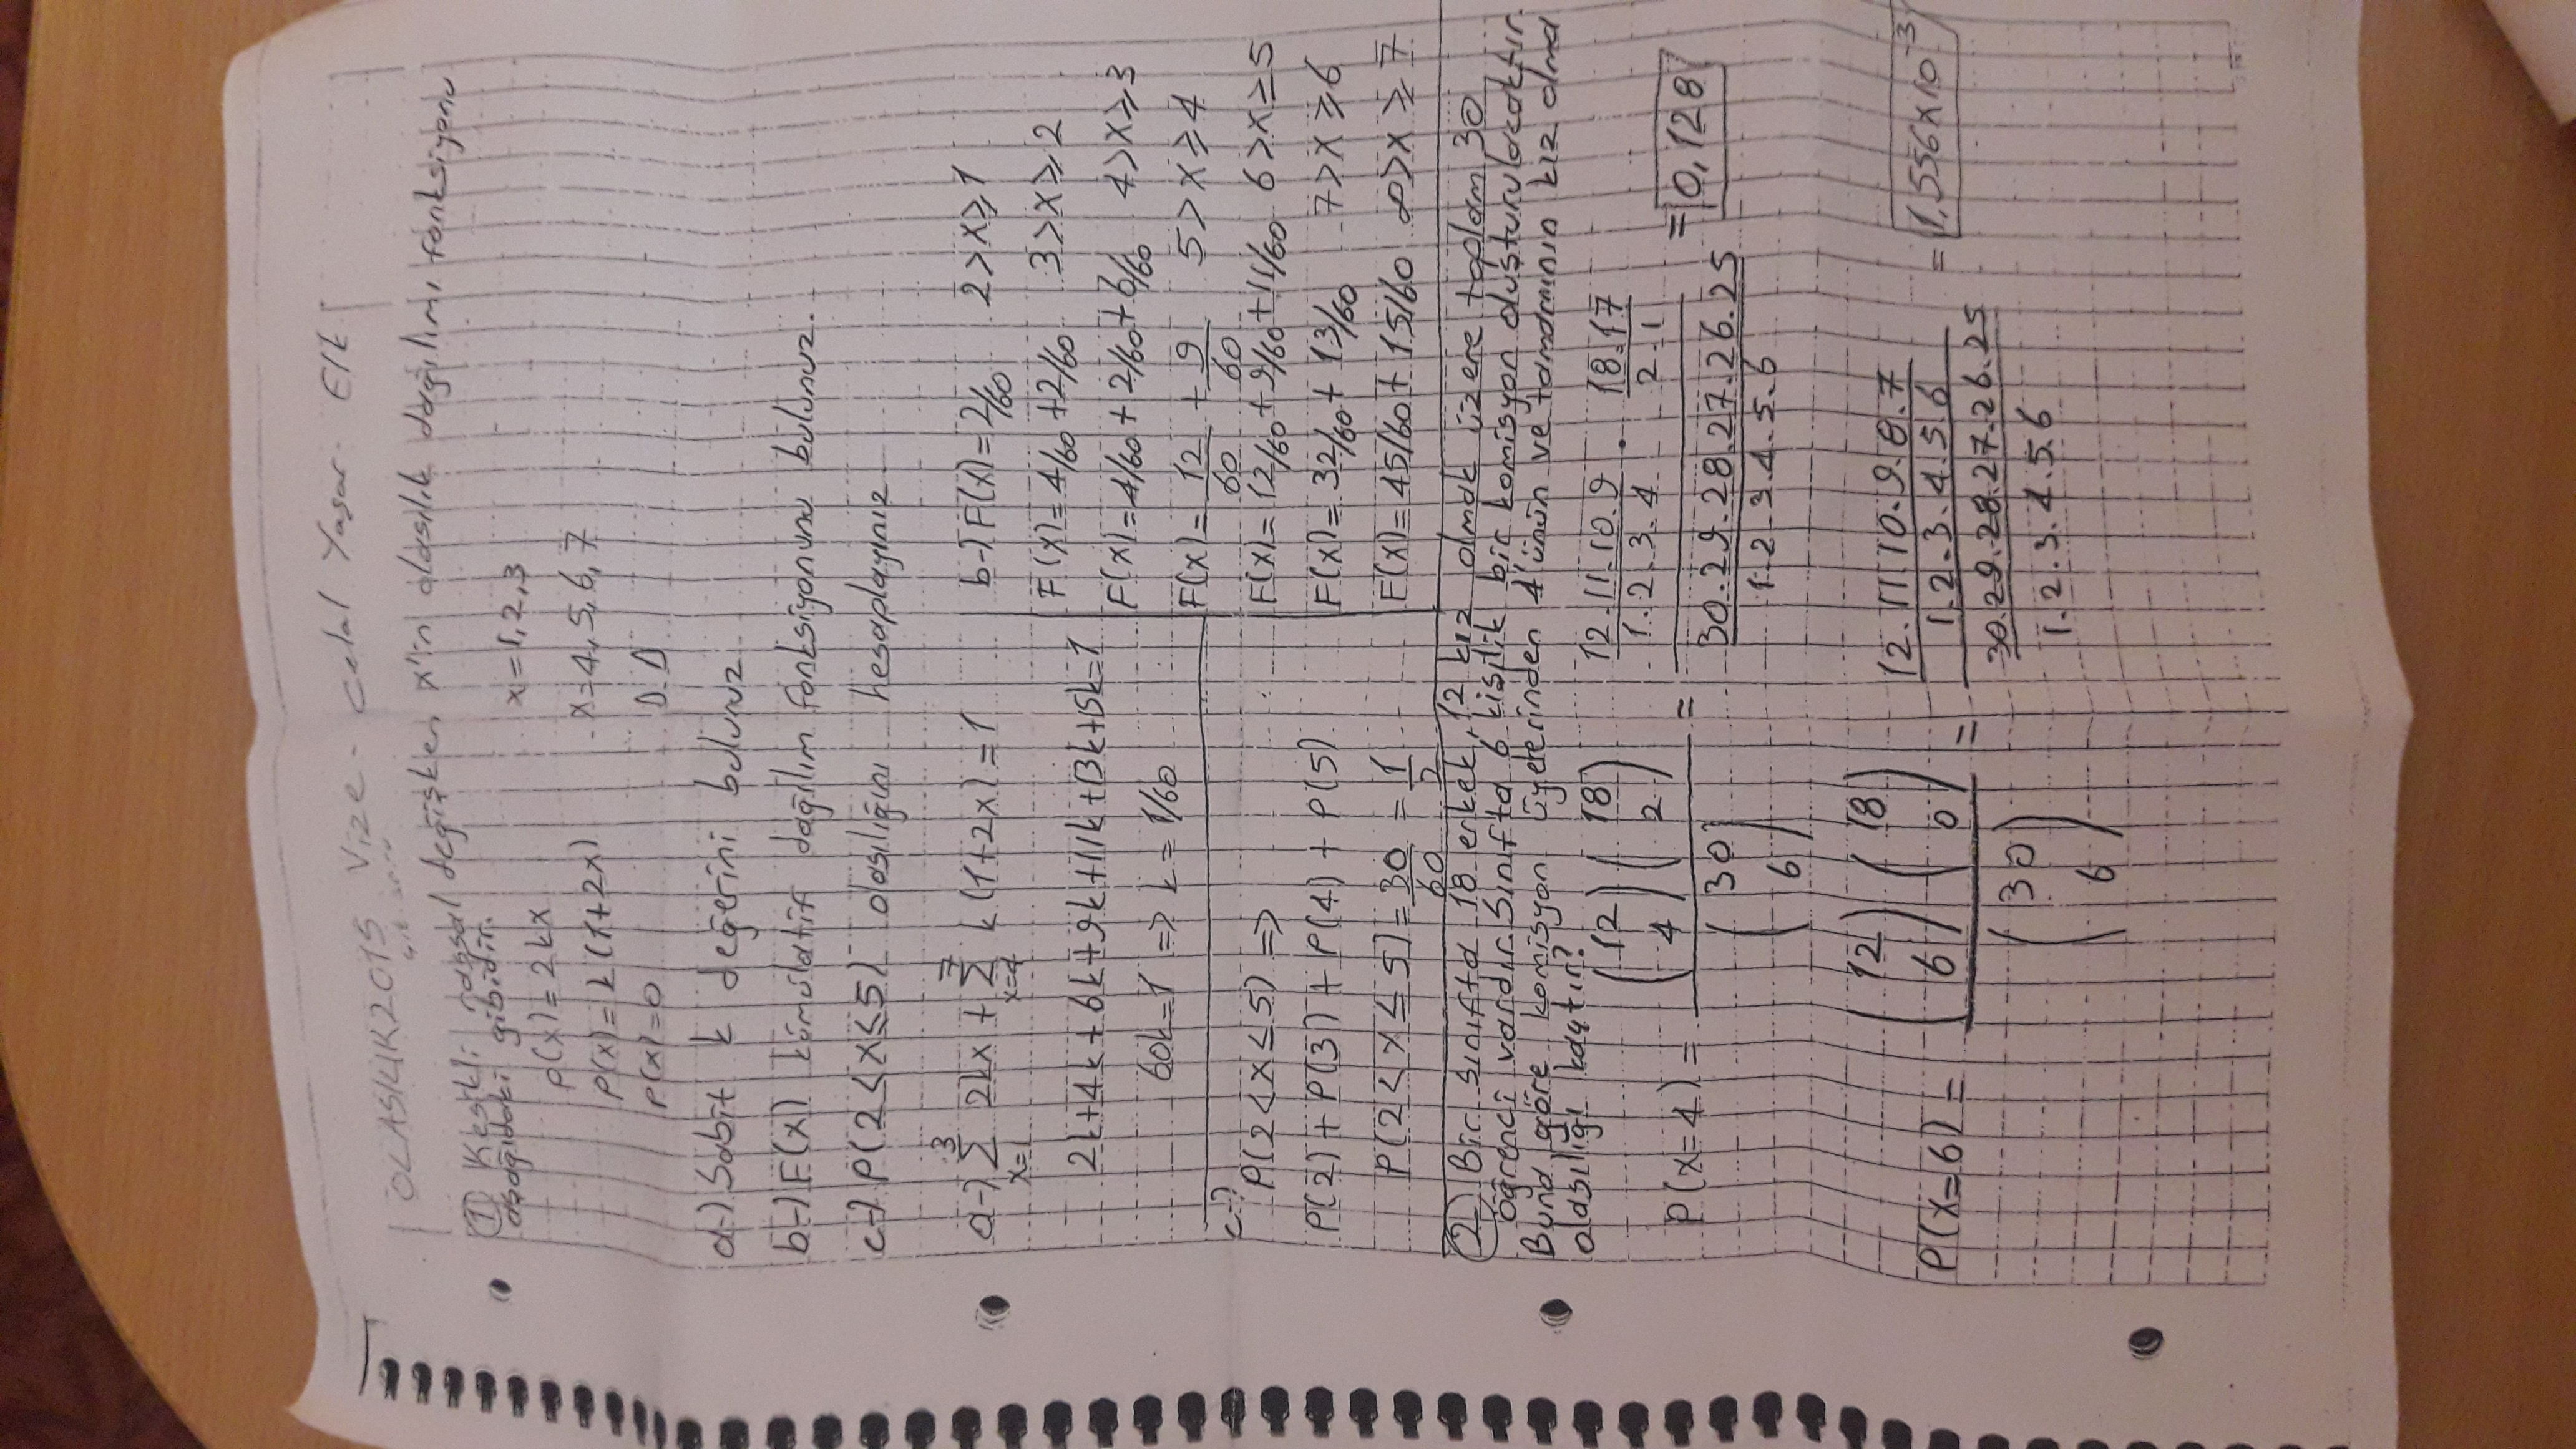 OLASILIK 2015 Vize - Celal Yaşar - Elk
① Kesikli rassal değişken x'in olasılık dağılımı fonksiyonu
aşağıdaki gibidir.
p(x)=2kx x=1,2,3
p(x)=k(1+2x) x=4,5,6,7
p(x)=0 D.D
a-) Sabit k değerini bulunuz
b-) F(x) kümülatif dağılım fonksiyonunu bulunuz.
c-) P(2<x≤5) olasılığını hesaplayınız
a-) 3∑x=1 2kx + 7∑x=4 k(1+2x)=1
2k+4k+6k+9k+11k+13k+15k=1
60k=1 => k=1/60
c-)
P(2<x≤5) =>
P(2)+P(3)+P(4)+P(5)
P(2<x≤5)=30/60=1/2
b-) F(x)=2/60 2>x≥1
F(x)=4/60+2/60 3>x≥2
F(x)=4/60+2/60+6/60 4>x≥3
F(x)=12/60+9/60 5>x≥4
F(x)=12/60+9/60+11/60 6>x≥5
F(x)=32/60+13/60 7>x≥6
F(x)=45/60+15/60 ∞>x≥7
②) Bir sınıfta 18 erkek, 12 kız olmak üzere toplam 30
öğrenci vardır. Sınıfta 6 kişilik bir komisyon oluşturulacaktır.
Buna göre komisyon üyelerinden 4'ünün ve tamamının kız olma
olasılığı kaçtır?
P(x=4) = (12 4)(18 2) / (30 6) = (12.11.10.9/1.2.3.4 . 18.17/2.1) / (30.29.28.27.26.25/1.2.3.4.5.6) = 0,128
P(x=6) = (12 6)(18 0) / (30 6) = (12.11.10.9.8.7/1.2.3.4.5.6) / (30.29.28.27.26.25/1.2.3.4.5.6) = 1,556x10⁻³